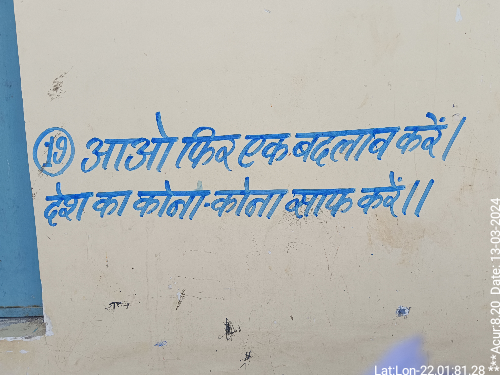 19 आओ फिर एक बदलाव करें।
देश का कोना-कोना साफ करें।।
Lat:Lon-22.01:81.28
***Acur:8.20 Date: 13-03-2024